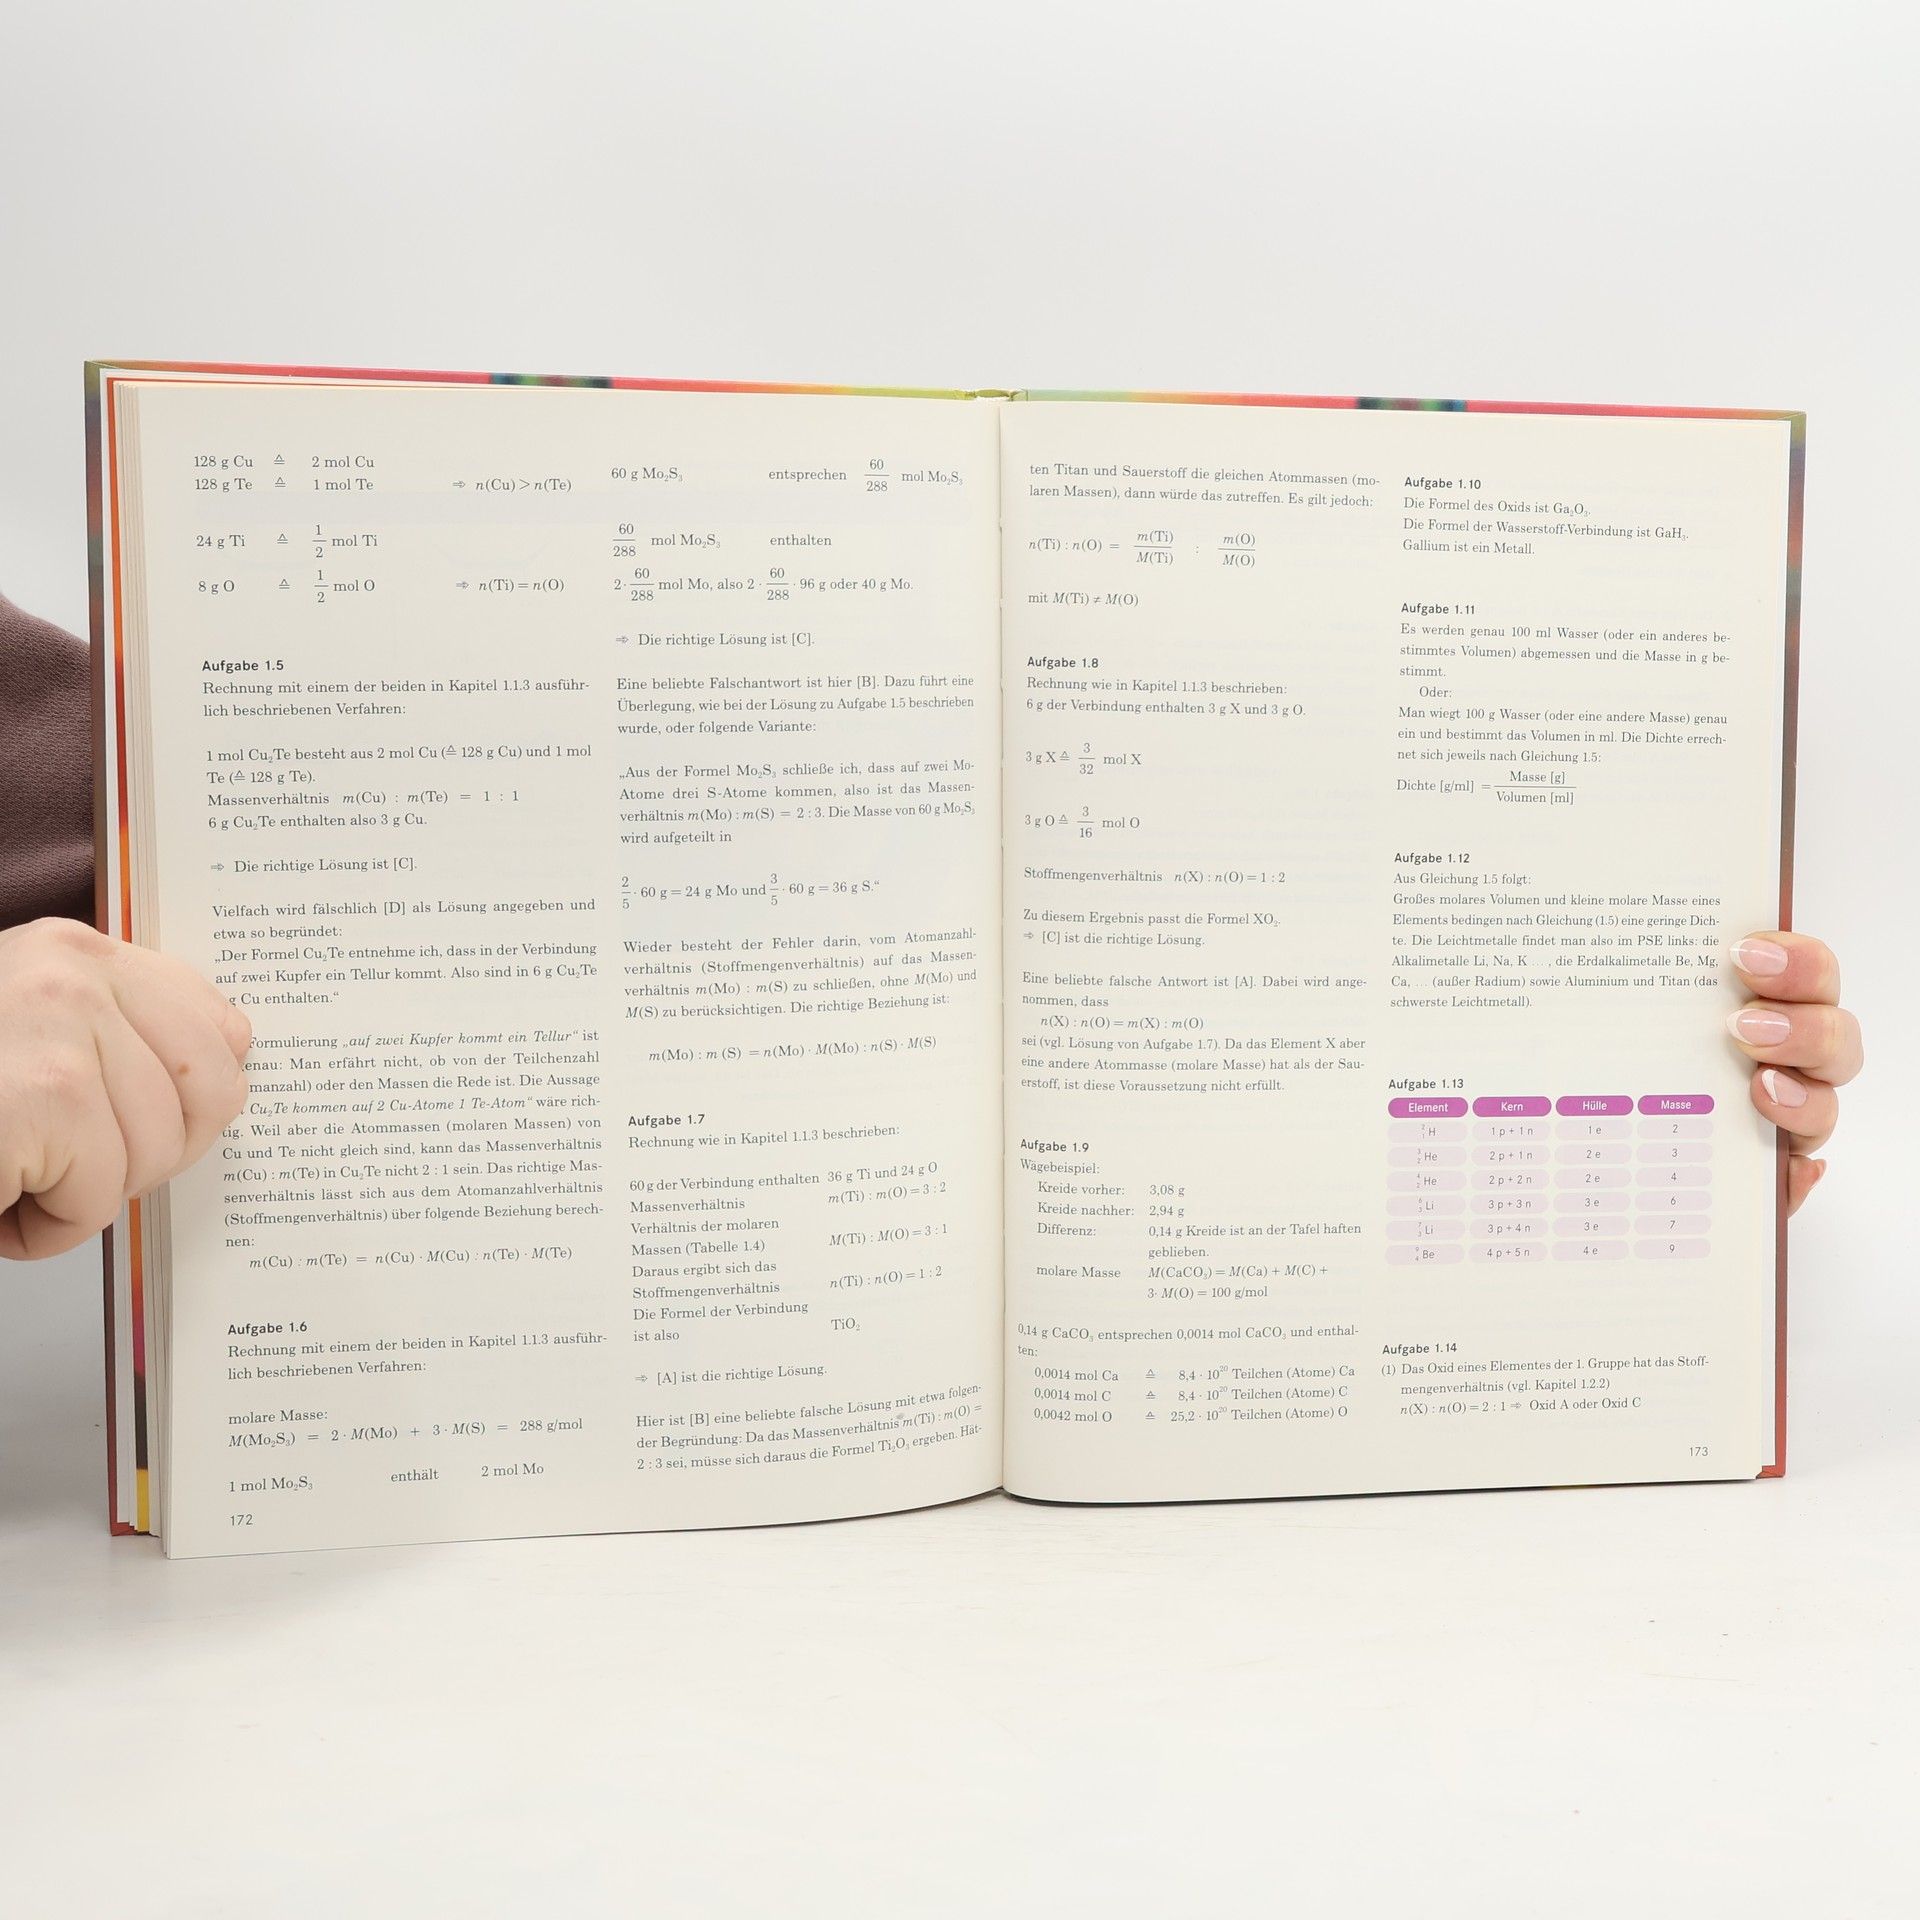 128 g Cu ≙ 2 mol Cu
128 g Te ≙ 1 mol Te ⇒ n(Cu) > n(Te)
24 g Ti ≙ 1/2 mol Ti
8 g O ≙ 1/2 mol O ⇒ n(Ti) = n(O)
Aufgabe 1.5
Rechnung mit einem der beiden in Kapitel 1.1.3 ausführ-
lich beschriebenen Verfahren:
1 mol Cu₂Te besteht aus 2 mol Cu (≙ 128 g Cu) und 1 mol
Te (≙ 128 g Te).
Massenverhältnis m(Cu) : m(Te) = 1 : 1
6 g Cu₂Te enthalten also 3 g Cu.
⇒ Die richtige Lösung ist [C].
Vielfach wird fälschlich [D] als Lösung angegeben und
etwa so begründet:
„Der Formel Cu₂Te entnehme ich, dass in der Verbindung
auf zwei Kupfer ein Tellur kommt. Also sind in 6 g Cu₂Te
g Cu enthalten.“
Formulierung „auf zwei Kupfer kommt ein Tellur“ ist
enau: Man erfährt nicht, ob von der Teilchenzahl
manzahl) oder den Massen die Rede ist. Die Aussage
Cu₂Te kommen auf 2 Cu-Atome 1 Te-Atom“ wäre rich-
tig. Weil aber die Atommassen (molaren Massen) von
Cu und Te nicht gleich sind, kann das Massenverhältnis
m(Cu) : m(Te) in Cu₂Te nicht 2 : 1 sein. Das richtige Mas-
senverhältnis lässt sich aus dem Atomanzahlverhältnis
(Stoffmengenverhältnis) über folgende Beziehung berech-
nen:
m(Cu) : m(Te) = n(Cu) · M(Cu) : n(Te) · M(Te)
Aufgabe 1.6
Rechnung mit einem der beiden in Kapitel 1.1.3 ausführ-
lich beschriebenen Verfahren:
molare Masse:
M(Mo₂S₃) = 2 · M(Mo) + 3 · M(S) = 288 g/mol
1 mol Mo₂S₃ enthält 2 mol Mo
172
60 g Mo₂S₃ entsprechen 60/288 mol Mo₂S₃
60/288 mol Mo₂S₃ enthalten
2 · 60/288 mol Mo, also 2 · 60/288 · 96 g oder 40 g Mo.
⇒ Die richtige Lösung ist [C].
Eine beliebte Falschantwort ist hier [B]. Dazu führt eine
Überlegung, wie bei der Lösung zu Aufgabe 1.5 beschrieben
wurde, oder folgende Variante:
„Aus der Formel Mo₂S₃ schließe ich, dass auf zwei Mo-
Atome drei S-Atome kommen, also ist das Massen-
verhältnis m(Mo) : m(S) = 2 : 3. Die Masse von 60 g Mo₂S₃
wird aufgeteilt in
2/5 · 60 g = 24 g Mo und 3/5 · 60 g = 36 g S.“
Wieder besteht der Fehler darin, vom Atomanzahl-
verhältnis (Stoffmengenverhältnis) auf das Massen-
verhältnis m(Mo) : m(S) zu schließen, ohne M(Mo) und
M(S) zu berücksichtigen. Die richtige Beziehung ist:
m(Mo) : m (S) = n(Mo) · M(Mo) : n(S) · M(S)
Aufgabe 1.7
Rechnung wie in Kapitel 1.1.3 beschrieben:
60 g der Verbindung enthalten 36 g Ti und 24 g O
Massenverhältnis m(Ti) : m(O) = 3 : 2
Verhältnis der molaren
Massen (Tabelle 1.4) M(Ti) : M(O) = 3 : 1
Daraus ergibt sich das
Stoffmengenverhältnis n(Ti) : n(O) = 1 : 2
Die Formel der Verbindung
ist also TiO₂
⇒ [A] ist die richtige Lösung.
Hier ist [B] eine beliebte falsche Lösung mit etwa folgen-
der Begründung: Da das Massenverhältnis m(Ti) : m(O) =
2 : 3 sei, müsse sich daraus die Formel Ti₂O₃ ergeben. Hät-
ten Titan und Sauerstoff die gleichen Atommassen (mo-
laren Massen), dann würde das zutreffen. Es gilt jedoch:
n(Ti) : n(O) = m(Ti)/M(Ti) : m(O)/M(O)
mit M(Ti) ≠ M(O)
Aufgabe 1.8
Rechnung wie in Kapitel 1.1.3 beschrieben:
6 g der Verbindung enthalten 3 g X und 3 g O.
3 g X ≙ 3/32 mol X
3 g O ≙ 3/16 mol O
Stoffmengenverhältnis n(X) : n(O) = 1 : 2
Zu diesem Ergebnis passt die Formel XO₂.
⇒ [C] ist die richtige Lösung.
Eine beliebte falsche Antwort ist [A]. Dabei wird ange-
nommen, dass
n(X) : n(O) = m(X) : m(O)
sei (vgl. Lösung von Aufgabe 1.7). Da das Element X aber
eine andere Atommasse (molare Masse) hat als der Sau-
erstoff, ist diese Voraussetzung nicht erfüllt.
Aufgabe 1.9
Wägebeispiel:
Kreide vorher: 3,08 g
Kreide nachher: 2,94 g
Differenz: 0,14 g Kreide ist an der Tafel haften
geblieben.
molare Masse M(CaCO₃) = M(Ca) + M(C) +
3 · M(O) = 100 g/mol
0,14 g CaCO₃ entsprechen 0,0014 mol CaCO₃ und enthal-
ten:
0,0014 mol Ca ≙ 8,4 · 10²⁰ Teilchen (Atome) Ca
0,0014 mol C ≙ 8,4 · 10²⁰ Teilchen (Atome) C
0,0042 mol O ≙ 25,2 · 10²⁰ Teilchen (Atome) O
Aufgabe 1.10
Die Formel des Oxids ist Ga₂O₃.
Die Formel der Wasserstoff-Verbindung ist GaH₃.
Gallium ist ein Metall.
Aufgabe 1.11
Es werden genau 100 ml Wasser (oder ein anderes be-
stimmtes Volumen) abgemessen und die Masse in g be-
stimmt.
Oder:
Man wiegt 100 g Wasser (oder eine andere Masse) genau
ein und bestimmt das Volumen in ml. Die Dichte errech-
net sich jeweils nach Gleichung 1.5:
Dichte [g/ml] = Masse [g]/Volumen [ml]
Aufgabe 1.12
Aus Gleichung 1.5 folgt:
Großes molares Volumen und kleine molare Masse eines
Elements bedingen nach Gleichung (1.5) eine geringe Dich-
te. Die Leichtmetalle findet man also im PSE links: die
Alkalimetalle Li, Na, K ... , die Erdalkalimetalle Be, Mg,
Ca, ... (außer Radium) sowie Aluminium und Titan (das
schwerste Leichtmetall).
Aufgabe 1.13
Element Kern Hülle Masse
²₁H 1 p + 1 n 1 e 2
³₂He 2 p + 1 n 2 e 3
⁴₂He 2 p + 2 n 2 e 4
⁶₃Li 3 p + 3 n 3 e 6
⁷₃Li 3 p + 4 n 3 e 7
⁹₄Be 4 p + 5 n 4 e 9
Aufgabe 1.14
(1) Das Oxid eines Elementes der 1. Gruppe hat das Stoff-
mengenverhältnis (vgl. Kapitel 1.2.2)
n(X) : n(O) = 2 : 1 ⇒ Oxid A oder Oxid C
173